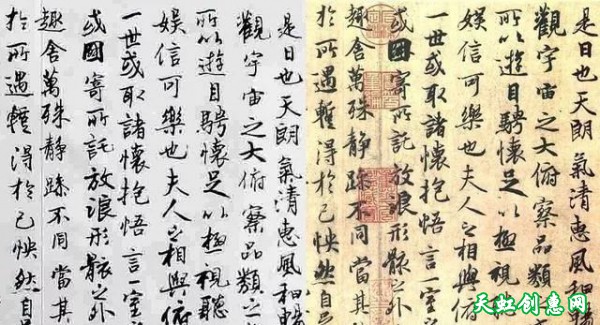 是日也天朗氣清惠風和暢
觀宇宙之大俯察品類
所以遊目騁懷足以極視
娛信可樂也夫人之相與俯
一世或取諸懷抱悟言一室
或因寄所託放浪形骸之外
趣舍萬殊靜躁不同當其
於所遇暫得於己怏然自
是日也天朗氣清惠風和暢
觀宇宙之大俯察品類之
所以遊目騁懷足以極視聽
娛信可樂也夫人之相與俯
一世或取諸懷抱悟言一室
或因寄所託放浪形骸之外
趣舍萬殊靜躁不同當其
於所遇暫得於己怏然自
天虹创意网